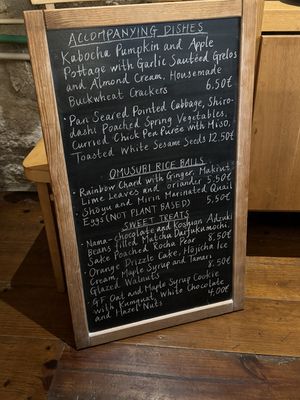 ACCOMPANYING DISHES
Kabocha Pumpkin and Apple
Pottage with Garlic Sautéed Grelos
and Almond Cream, Housemade
Buckwheat Crackers 6.50€
• Pan Seared Pointed Cabbage, Shiro-
dashi Poached Spring Vegetables,
Curried Chick Pen Purée with Miso,
Toasted White Sesame Seeds 12.50€
OMUSUBI RICE BALLS
• Rainbow Chard with Ginger, Makrut
Lime Leaves and oriander 5.50€
• Shōyu and Mirin Marinated Quail
Eggs (NOT PLANT BASED) 5,50€
SWEET TREATS
• Nama-chocolate and Koshian Adzuki
Beans filled Matcha Daifukumochi,
Sake Poached Rocha Pear 8.50€
• Orange Drizzle Cake, Hōjicha Ice
Cream, Maple Syrup and Tamari
Glazed Walnuts 8.50€
• GF Oat and Maple Syrup Cookie
with Kumquat, White Chocolate
and Hazel Nuts 4.00€